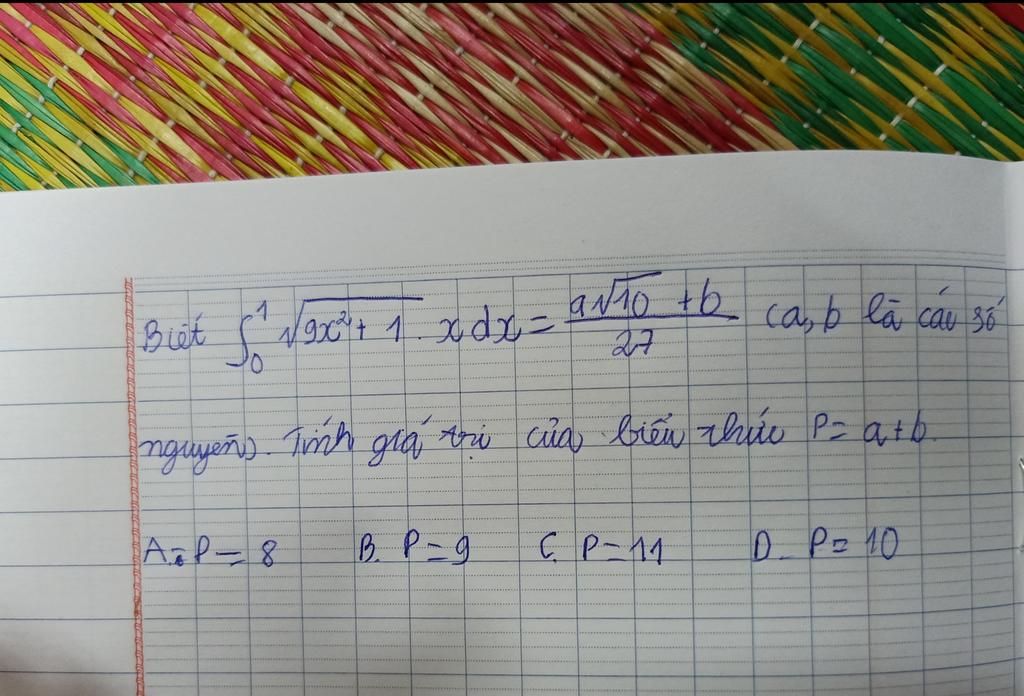 Biết ∫₀¹ √(9x²+1) . x dx = (a√10 + b)/27 (a, b là các số
nguyên). Tính giá trị của biểu thức P = a+b.
A. P = 8 B. P = 9 C. P = 11 D. P = 10